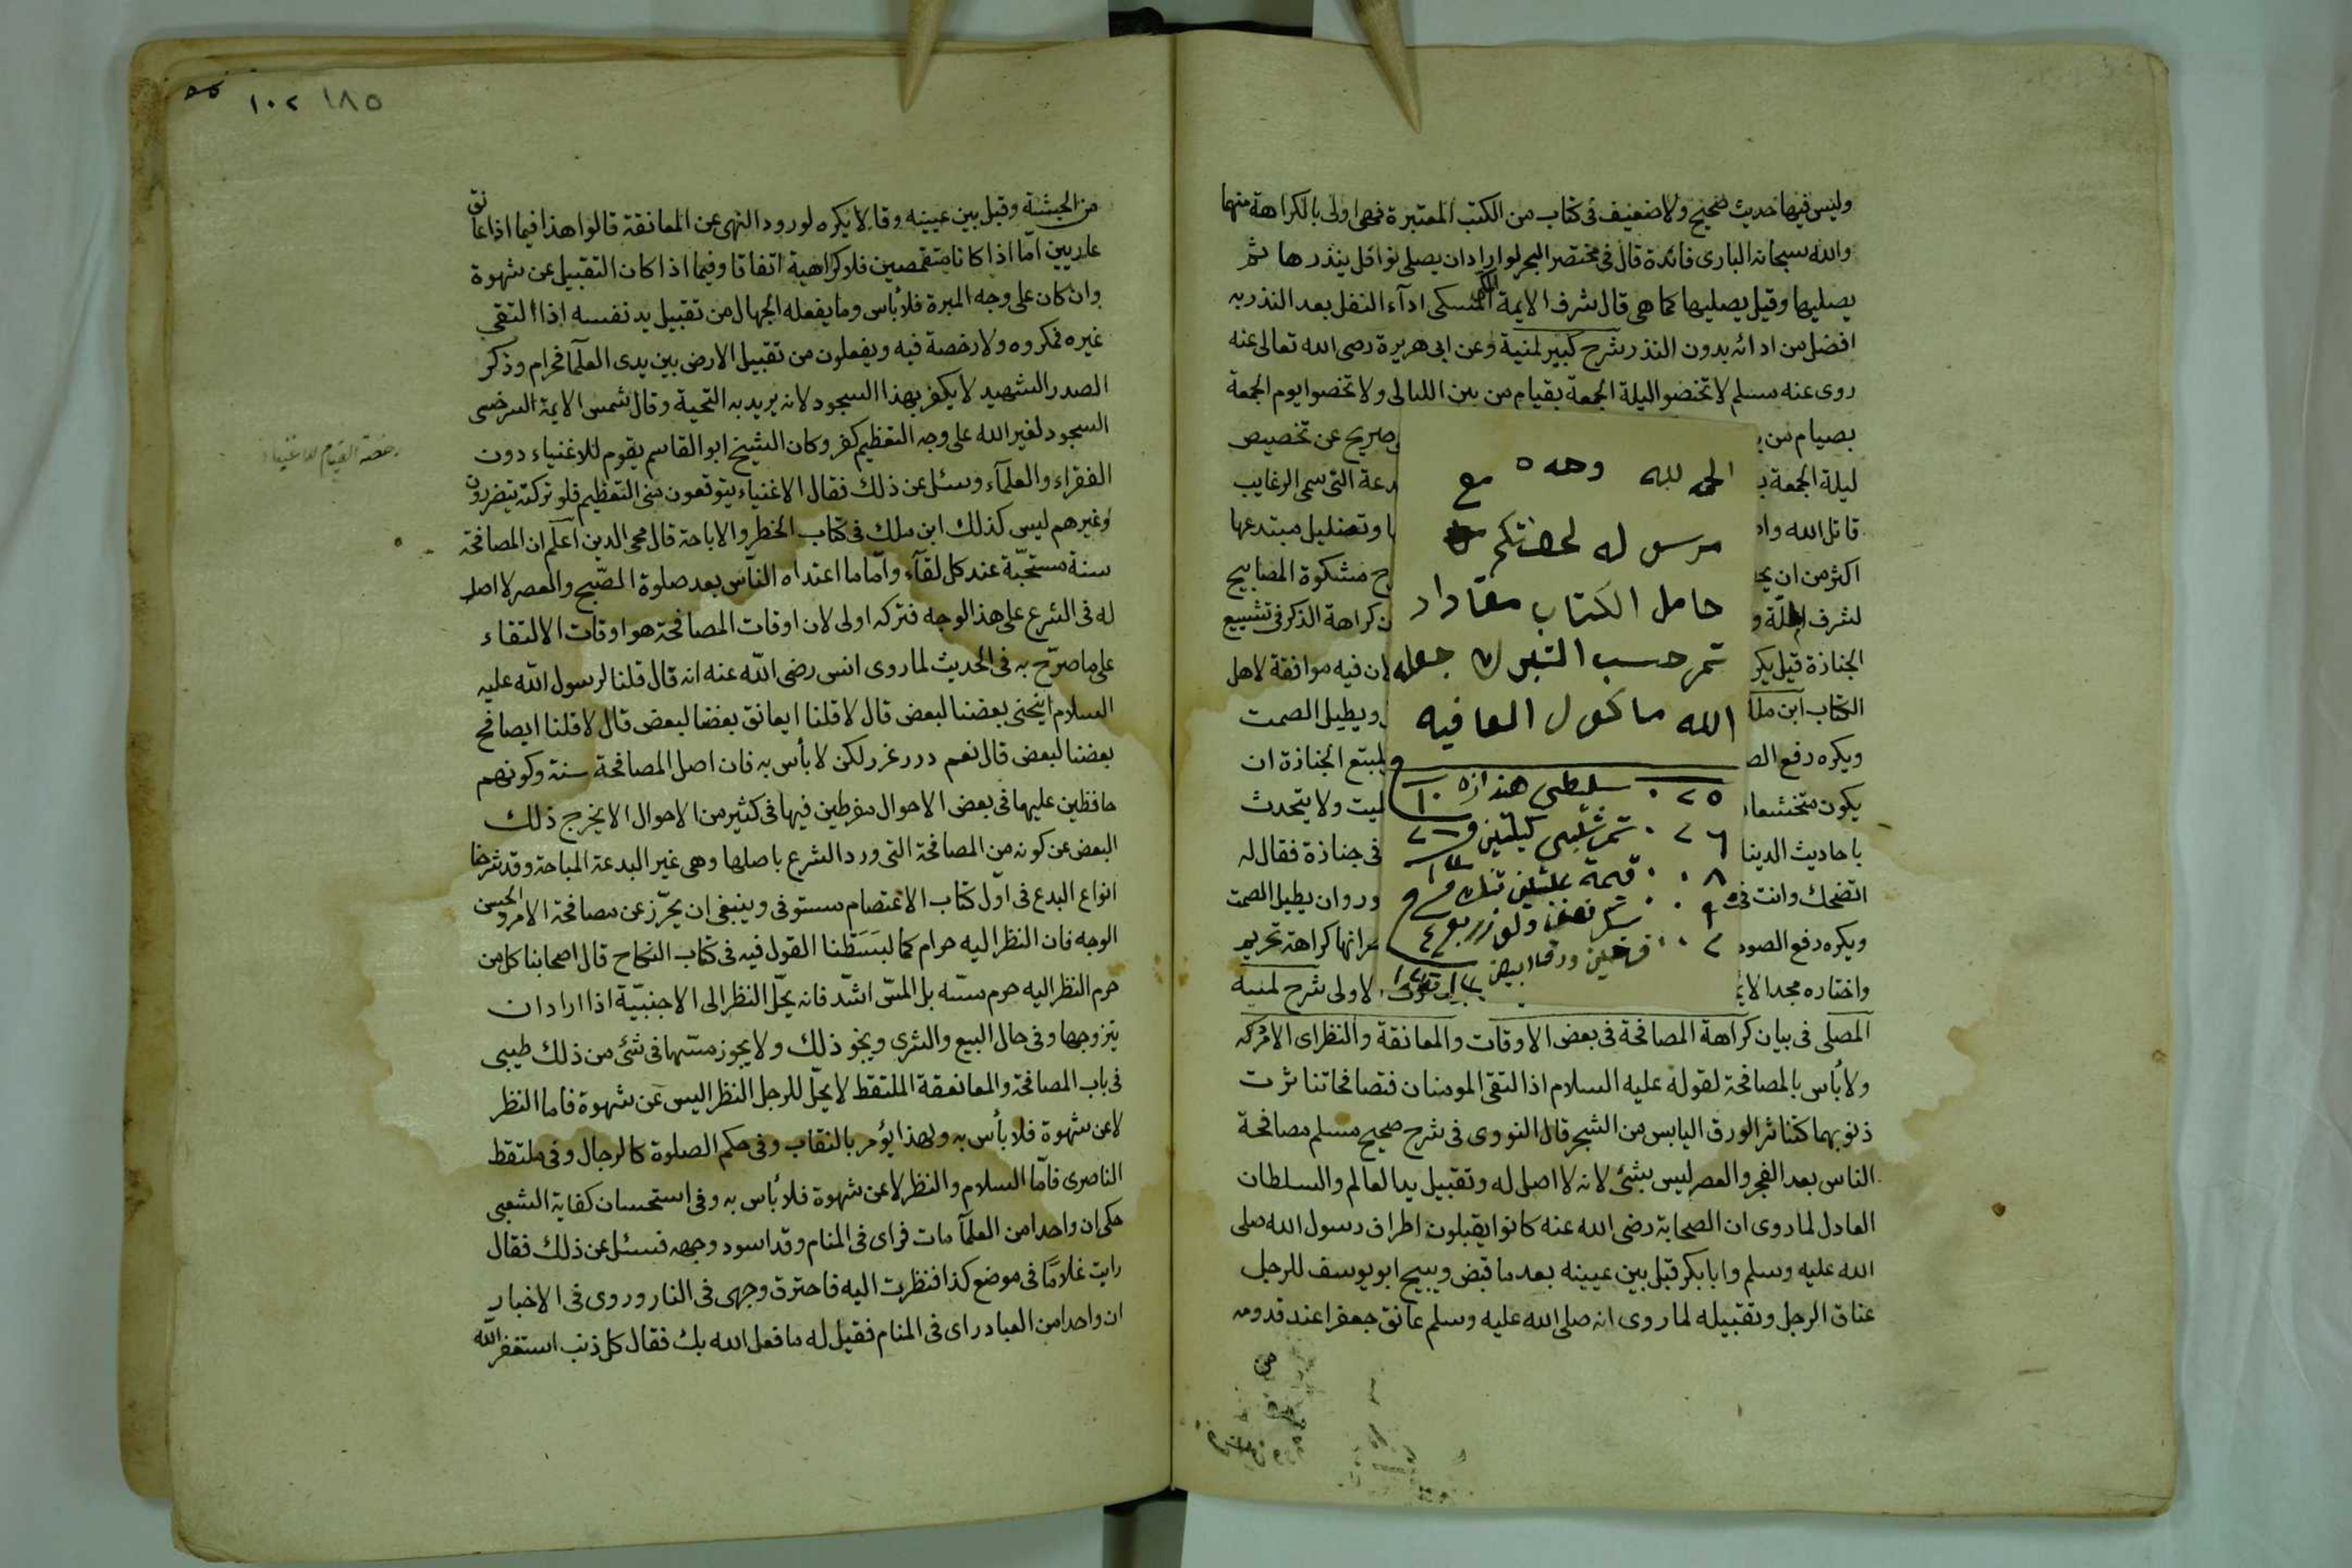 وليس فيها حديث صحيح ولا ضعيف فى كتاب من الكتب المعتبرة فهى اولى بالكراهة منها
والله سبحانه البارى فائدة قال فى مختصر البحر لو اراد ان يصلى نوافل ينذرها ثم
يصليها وقيل يصليها كما هى قال شرف الايمة المكى ادآء النفل بعد النذر به
افضل من ادائه بدون النذر شرح كبير لمنية وعن ابى هريرة رضى الله تعالى عنه
روى عنه مسلم لا تختصوا ليلة الجمعة بقيام من بين الليالى ولا تخصوا يوم الجمعة
بصيام من صريح عن تخصيص
ليلة الجمعة دعة التى سمى الرغايب
قاتل الله وا وتضليل مبتدعها
اكثر من ان يح ح مشكوة المصابيح
لشرف و ن كراهة الذكر فى تشييع
الجنازة قيل يكر لان فيه موافقة لاهل
الكتاب ابن ملك ويطيل الصمت
ويكره رفع الص لمتبع الجنازة ان
يكون متخشعا ليت ولا يتحدث
باحاديث الدنيا فى جنازة فقال له
اتضحك وانت فى ور وان يطيل الصمت
ويكره رفع الصو انها كراهة تحريم
واختاره مجد الاي لاولى شرح لمنية
المصلى فى بيان كراهة المصافحة فى بعض الاوقات والمعانقة والنظر اى الامر كه
ولا بأس بالمصافحة لقوله عليه السلام اذا التقى المومنان فتصافحا تناثرت
ذنوبهما كتناثر الورق اليابس من الشجر قال النووى فى شرح صحيح مسلم مصافحة
الناس بعد الفجر والعصر ليس بشئ لانه لا اصل له وتقبيل يد العالم والسلطان
العادل لما روى ان الصحابة رضى الله عنه كانوا يقبلون اطراف رسول الله صلى
الله عليه وسلم وابا بكر قبل بين عينيه بعد ما قبض ويبيح ابو يوسف للرجل
عناق الرجل وتقبيله لما روى انه صلى الله عليه وسلم عانق جعفرا عند قدومه
من
الحمد لله وحده
مرسول لحضرتكم
حامل الكتاب مقادار
تمر حسب التبرك جعله
الله ماكول العافيه
٢٥ سليطى هندازه ١٠
٢٦ تمر شلبى كيلتين
٠٨ قيمة
٠٩ تمر نصف
٠٢ فرختين ورق ابيض
١٨٥ ١٠٢
من الحبشة وقبل بين عينيه وقالا يكره لورود النهى عن المعانقة قالوا هذا فيما اذا عانق
عاريين اما اذا كانا متقمصين فلا كراهية اتفاقا وفيما اذا كان التقبيل عن شهوة
وان كان على وجه المبرة فلا بأس وما يفعله الجهال من تقبيل يد نفسه اذا التقى
غيره فمكروه ولا رخصة فيه ويفعلون من تقبيل الارض بين يدى العلماء فحرام وذكر
الصدر الشهيد لا يكفر بهذا السجود لانه يريد به التحية وقال شمس الايمة السرخسى
السجود لغير الله على وجه التعظيم كفر وكان الشيخ ابو القاسم يقوم للاغنياء دون
رخصة القيام للاغنياء
الفقراء والعلمآء وسئل عن ذلك فقال الاغنياء يتوقعون منى التعظيم فلو تركته يتضررون
وغيرهم ليس كذلك ابن ملك فى كتاب الحظر والاباحة قال محى الدين اعلم ان المصافحة
سنة مستحبّة عند كل لقآء واما ما اعتداه الناس بعد صلوة الصّبح والعصر لا اصل
له فى الشرع على هذا الوجه فتركه اولى لان اوقات المصافحة هو اوقات الالتقاء
على ما صرّح به فى الحديث لما روى انس رضى الله عنه انه قال قلنا لرسول الله عليه
السلام اينحنى بعضنا لبعض قال لا قلنا ايعانق بعضنا لبعض قال لا قلنا ايصافح
بعضنا لبعض قال نعم درر غرر لكن لا بأس به فان اصل المصافحة سنة وكونهم
حافظين عليها فى بعض الاحوال مفرطين فيها فى كثير من الاحوال لا يخرج ذلك
البعض عن كونه من المصافحة التى ورد الشرع باصلها وهى غير البدعة المباحة وقد شرحنا
انواع البدع فى اول كتاب الاعتصام مستوفى وينبغى ان يحرّز عن مصافحة الامرد الحسن
الوجه فان النظر اليه حرام كما لبسَطنا القول فيه فى كتاب النكاح قال اصحابنا كل من
حرم النظر اليه حرم مسّه بل المسّ اشد فانه يحلّ النظر الى الاجنبيّة اذا اراد ان
يتزوجها وفى حال البيع والشرى ونحو ذلك ولا يجوز مسّها فى شئ من ذلك طيبى
فى باب المصافحة والمعانقة الملتقط لا يحلّ للرجل النظر اليس عن شهوة فاما النظر
لا عن شهوة فلا بأس به ولهذا يؤمر بالنقاب وفى حكم الصلوة كالرجال وفى ملتقط
الناصرى فاما السلام والنظر لا عن شهوة فلا بأس به وفى استحسان كفاية الشعبى
حكى ان واحدا من العلمآ مات فراى فى المنام وقد اسود وجهه فسئل عن ذلك فقال
رايت غلامًا فى موضع كذا فنظرت اليه فاحترق وجهى فى النار وروى فى الاخبار
ان واحدا من العباد راى فى المنام فقيل له ما فعل الله بك فقال كل ذنب استغفر الله